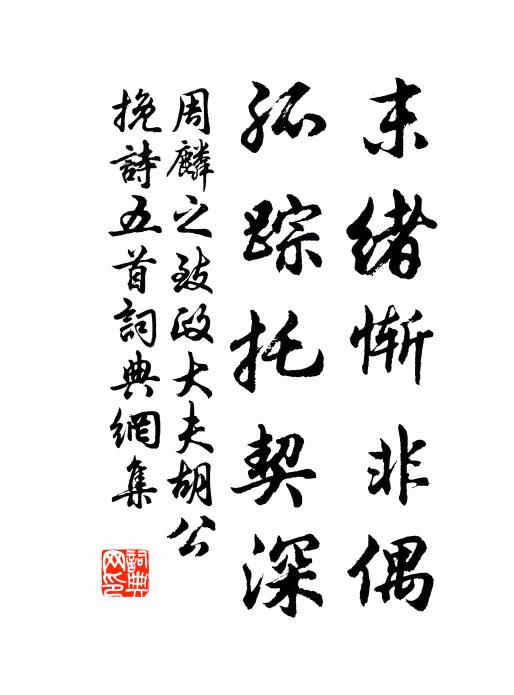 末绪惭非偶
孤踪托契深
周麟之致政大夫胡公
挽詩五首詞典網集
詞典网印